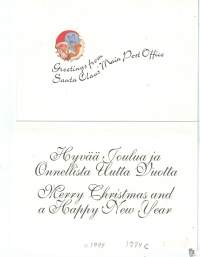 Greetings from
Santa Claus' Main Post Office
Hyvää Joulua ja
Onnellista Uutta Vuotta
Merry Christmas and
a Happy New Year